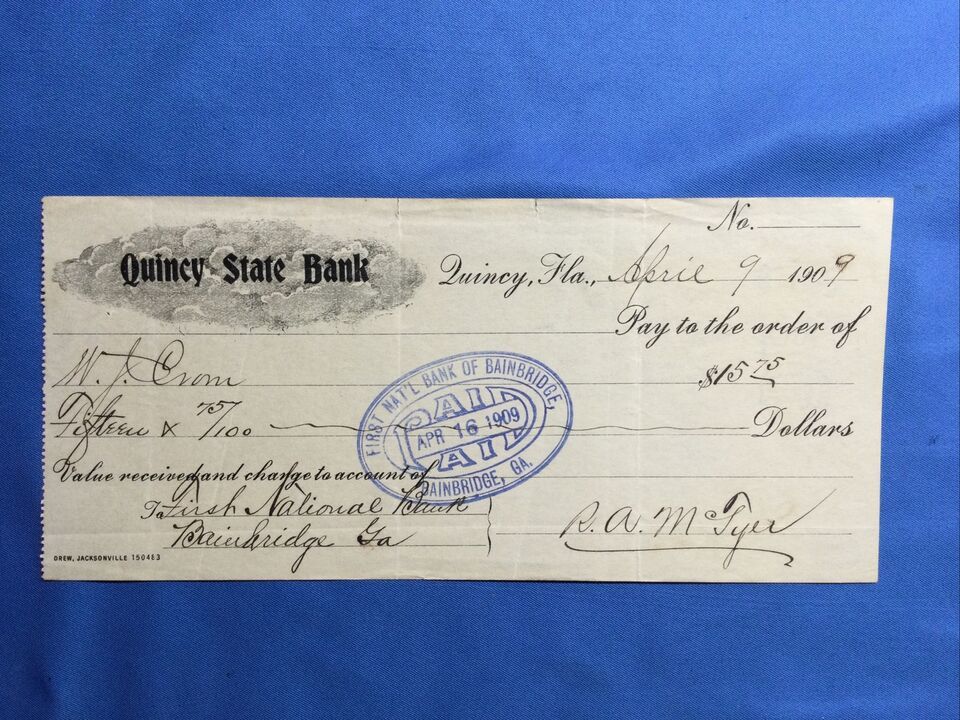 No.
Quincy State Bank
Quincy, Fla., April 9 1909
Pay to the order of
W. J. Crom
$15 75
Fifteen & 75/100 Dollars
FIRST NAT'L BANK OF BAINBRIDGE,
PAID
APR 16 1909
PAID
BAINBRIDGE, GA.
Value received and charge to account of
To First National Bank
Bainbridge Ga
R. A. McTyer
DREW, JACKSONVILLE 150483